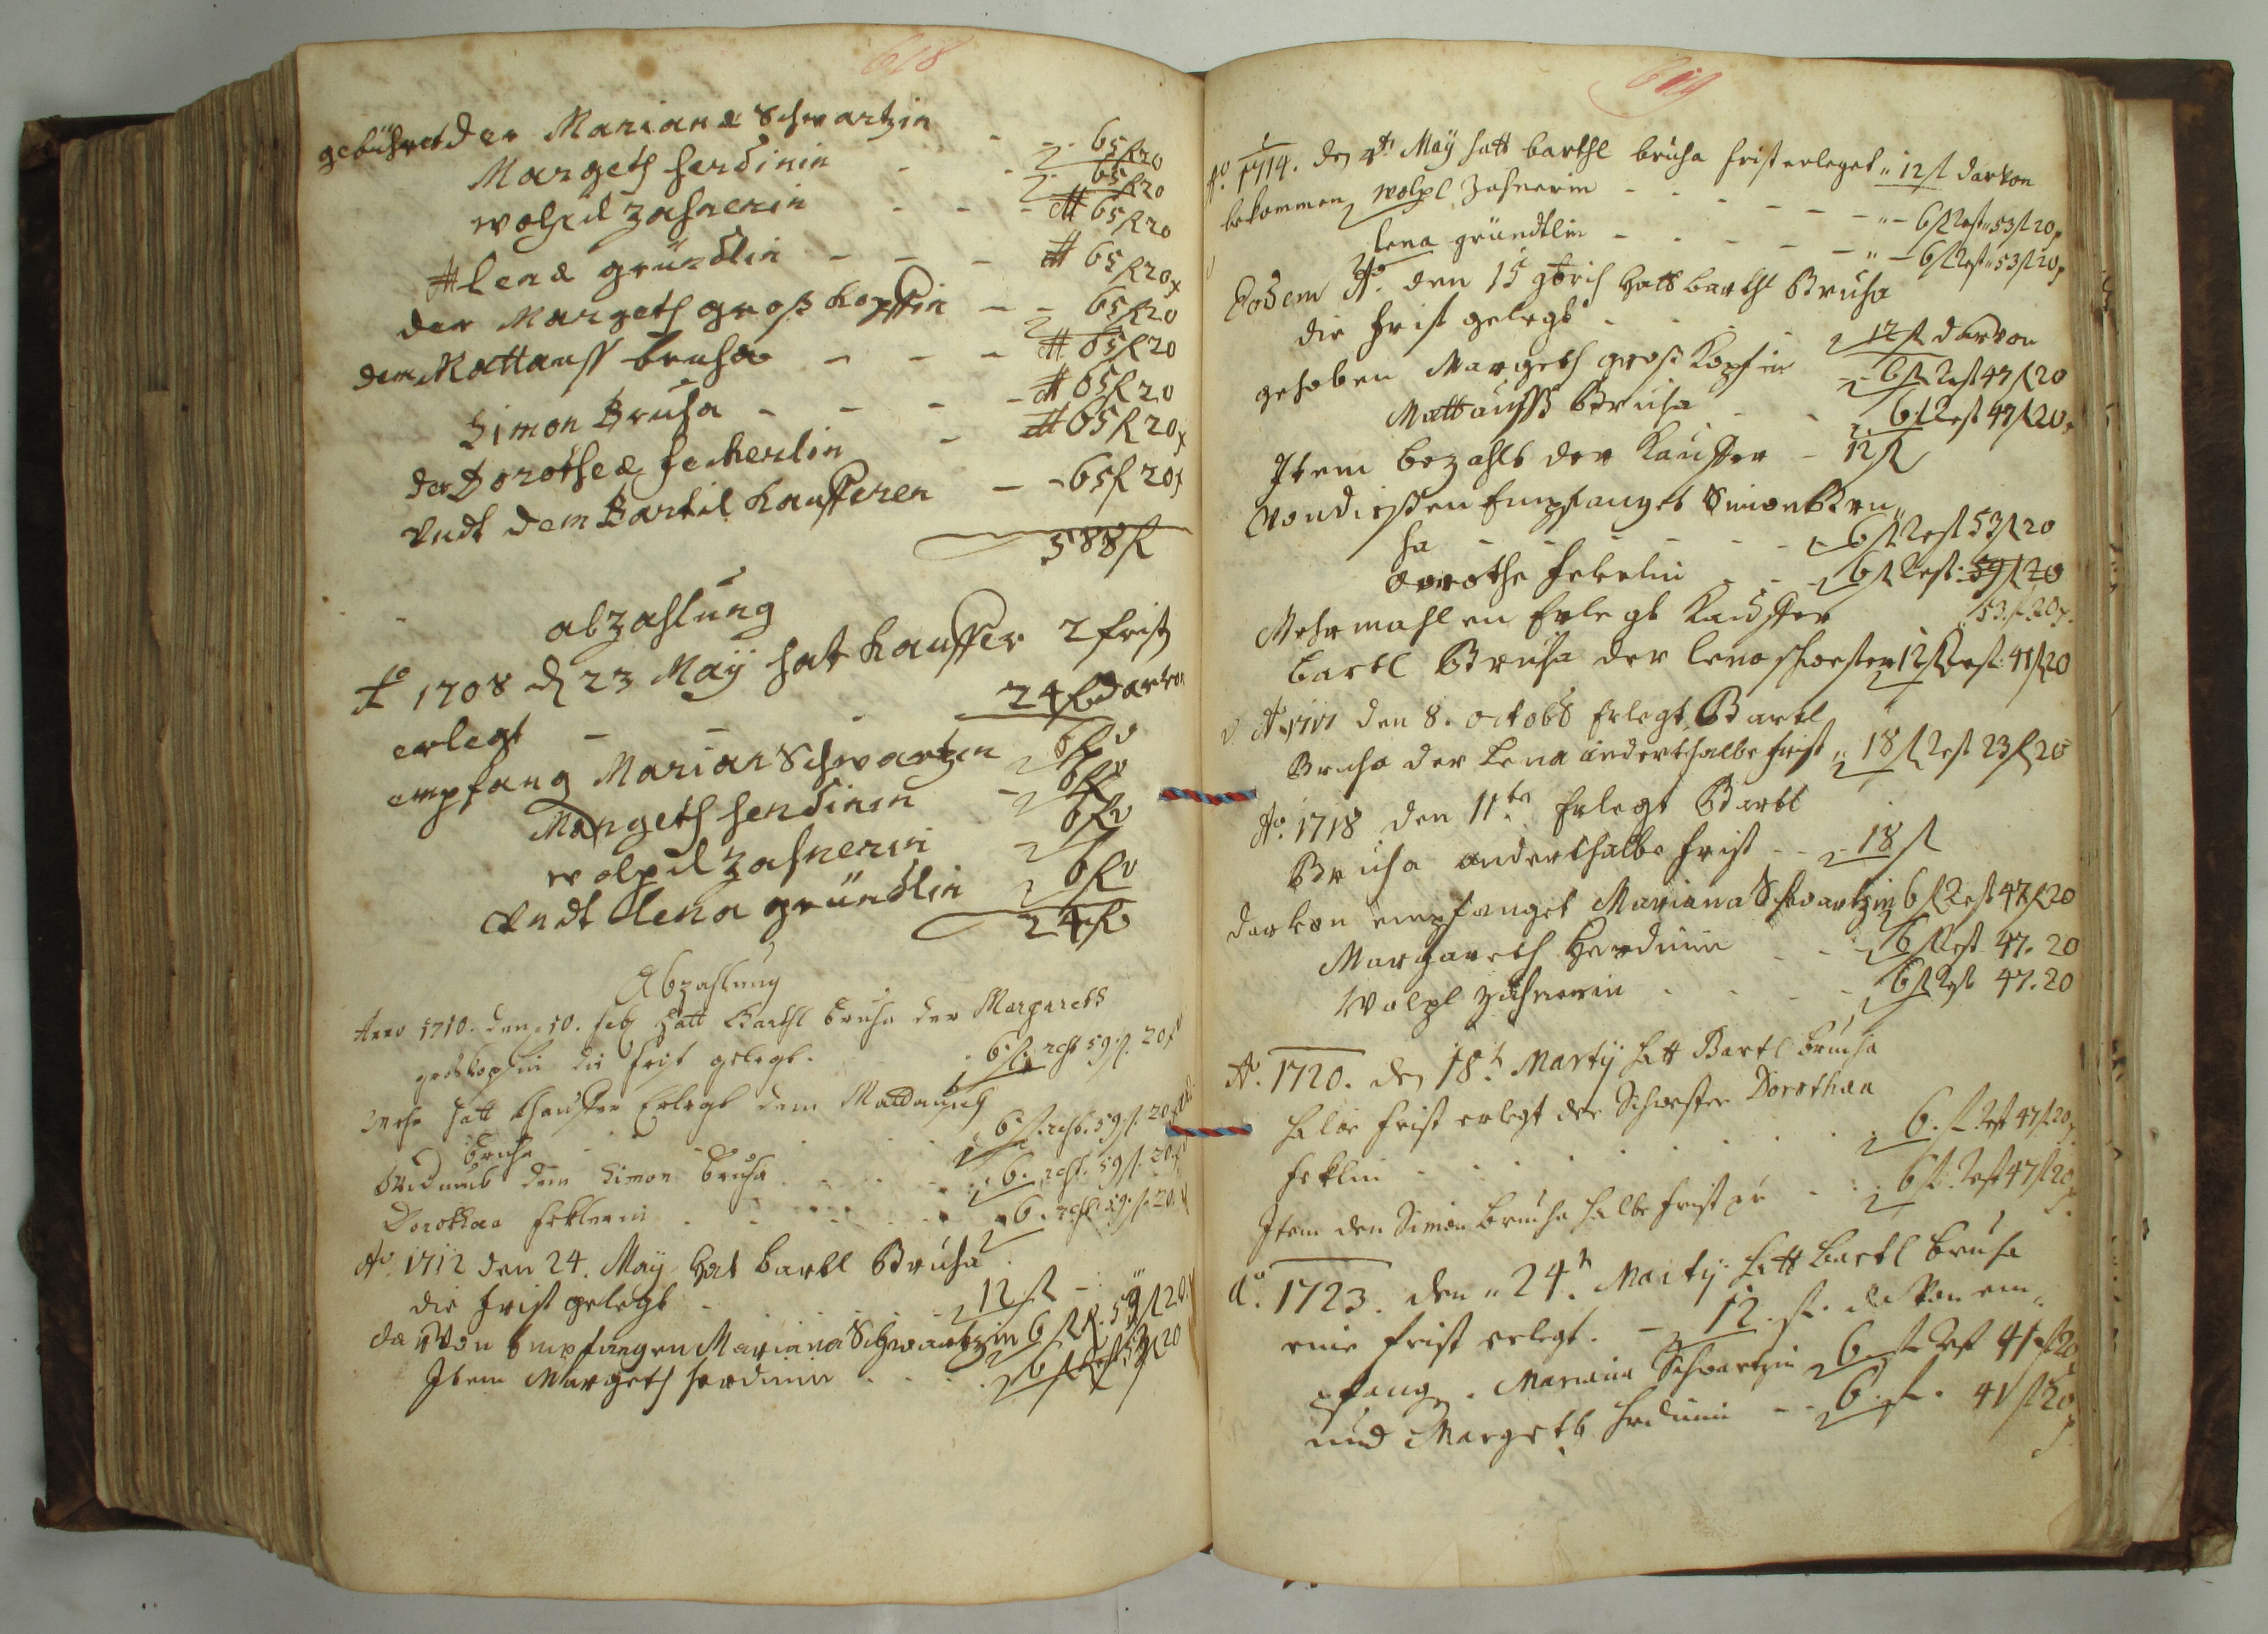 618
gebühret der Mariana Schwartzin - - 65 fl 20
Margeth herdinin - - 65 fl 20
wolpil zahnerin - - - 65 fl 20
lena gründlin - - - 65 fl 20 x
der Margeth groß kopffin - - 65 fl 20
dem Mattauß bruha - - - 65 fl 20
Simon Bruha - - - - 65 fl 20
der Dorothea fecherlin - 65 fl 20 x
Vndt dem Bartil Kaufferen - - 65 fl 20 x
588 fl
abzahlung
Ao 1708 d 23 Maÿ hat kauffer 2 frist
erlegt - - - 24 fl darvon
empfang Marian Schwartzin 6 fl
Margeth herdinin - 6 fl
wolpil zahnerin - 6 fl
Vndt lena gründlin 6 fl
24 fl
Abzahlung
Anno 1710. den 10. feb hatt Barthl Bruha der Margareth
großkopfin die frist gelegt. 6 fl. rest 59 fl. 20 x
mehr hatt Kauffer Erlegt dem Mattauß
Bruha - - - 6 fl. rest. 59 fl. 20
Widumb dem Simon Bruha - - - 6. rest. 59 fl. 20 x
Dorothea feklerin - - - 6. rest 59 fl. 20 x
Ao. 1712 den 24. Maÿ hat bartl Bruha
die frist gelegt - - - 12 fl -
darvon Empfangen Mariana Schwartzin 6 fl R. 53 fl 20
Item Margeth herdinin . . . . 6 fl Rest 53 fl 20
619
Ao. 1714. den 4t Maÿ hatt barthl bruha frist erleget 12 fl darvon
bekommen wolpl Zahnerin - - - - - 6 fl Rest 53 fl 20 x
lena gründtlin - - - - - 6 fl Rest 53 fl 20 x
Eodem Ao. den 15 hatt barthl Bruha
die frist gelegt - - - 12 fl darvon
gehoben Margeth groß Kopfin 6 fl Rest 47 fl 20
Mattauß Bruha - - 6 fl Rest 47 fl 20 x
Item bezahlt der Kauffer - 12 fl
Von dießen Empfanget Simon Bru„
ha - - - - - 6 fl Rest 53 fl 20
Dorothe fekelin - - 6 fl Rest: 59 fl 20
53 fl 20 x.
Mehrmahlen Erlegt Kauffer
bartl Bruha der lena schwester 12 fl Rest: 41 fl 20
Ao 1717 den 8. octobr Erlegt Bartl
Bruha der Lena anderthalbe frist 18 fl Rest 23 fl 20
Ao. 1718 den 11ten Erlegt Bartl
Bruha anderthalbe frist - - 18 fl
darvon empfanget Mariana Schwartzin 6 fl Rest 47 fl 20
Margareth Herdinin - - 6 fl Rest 47. 20
Wolpl zahnerin - - - - 6 fl Rest 47. 20
Ao. 1720. den 18t Martÿ hatt Bartl Bruha
halbe frist erlegt der Schwester Dorothea
feklin - - - - - - 6. fl Rest 47 fl 20 x
Item den Simon Bruha halbe frist - - 6 fl. Rest 47 fl 20
Ao. 1723. den 24t. Martÿ hatt bartl bruha
eine frist erlegt. - 12. fl. darvon em„
pfang. Mariana Schwartzin 6 fl Rest 41 fl 20
und Margeth herdinin - - 6. fl. 41 fl 20